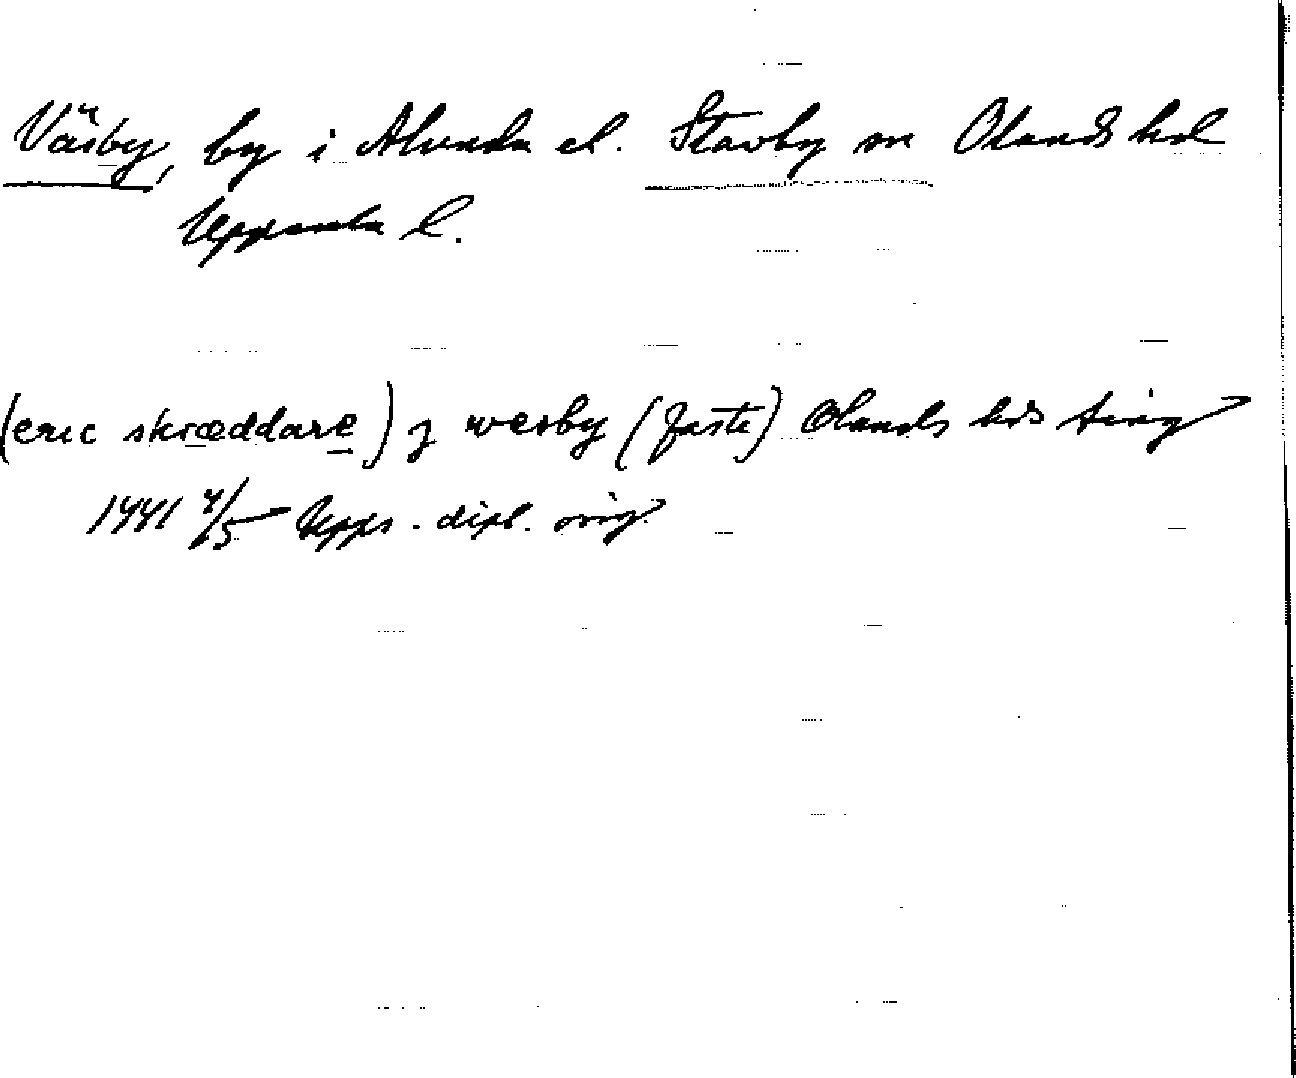 Väsby, by i Alunda el. Stavby sn Olands hd
Uppsala l.
(eric skræddare) j wesby (faste) Olands hds ting
1441 4/5 Upps. dipl. orig.